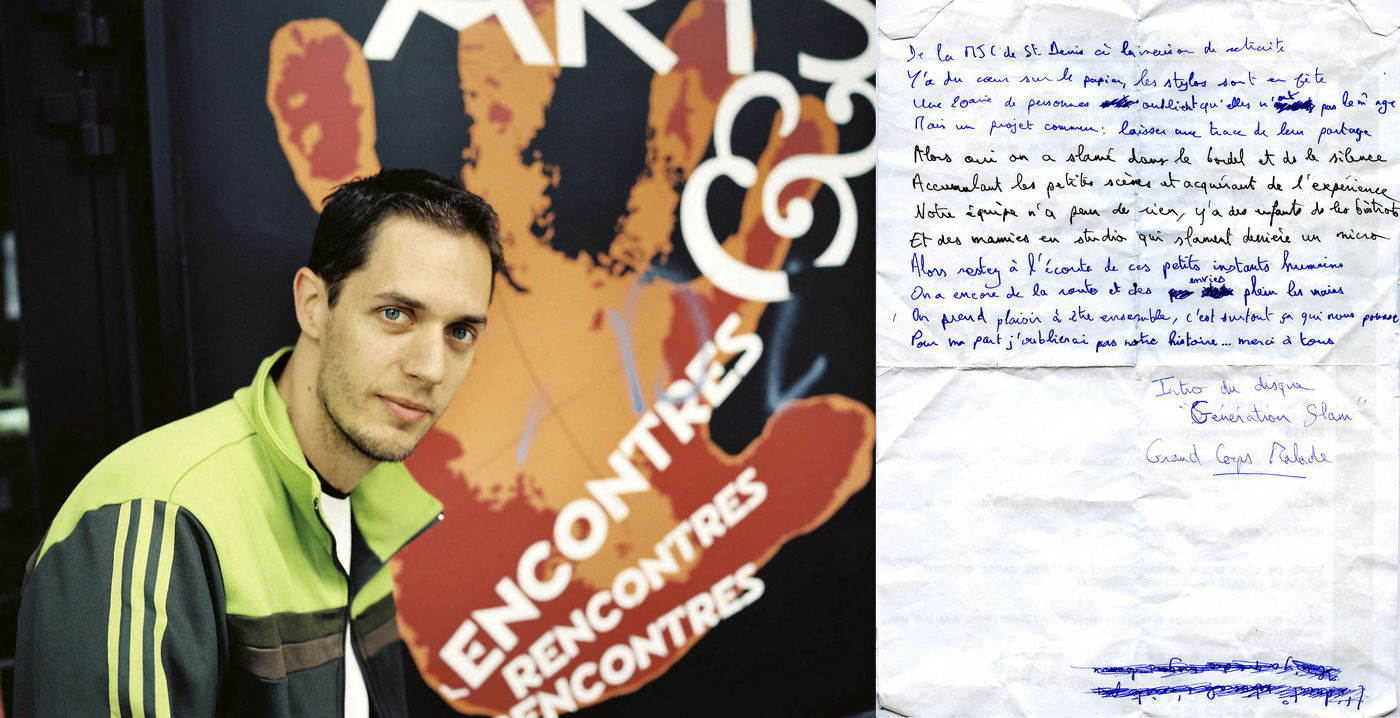 ARTS
&
RENCONTRES
RENCONTRES
RENCONTRES
De la MJC de St Denis à la maison de retraite
Y'a du cœur sur le papier, les stylos sont en fête
Une 20aine de personnes oublient qu'elles n'ont pas le m̂ age
Mais un projet commun : laisser une trace de leur partage
Alors oui on a slamé dans le bordel et de le silence
Accumulant les petites scènes et acquérant de l'expérience
Notre équipe n'a peur de rien, y'a des enfants ds les bistrots
Et des mamies en studio qui slament derrière un micro
Alors restez à l'écoute de ces petits instants humains
On a encore de la route et des envies plein les mains
On prend plaisir à être ensemble, c'est surtout ça qui nous pousse
Pour ma part j'oublierai pas notre histoire... merci à tous
Intro du disque
"Génération Slam"
Grand Corps Malade